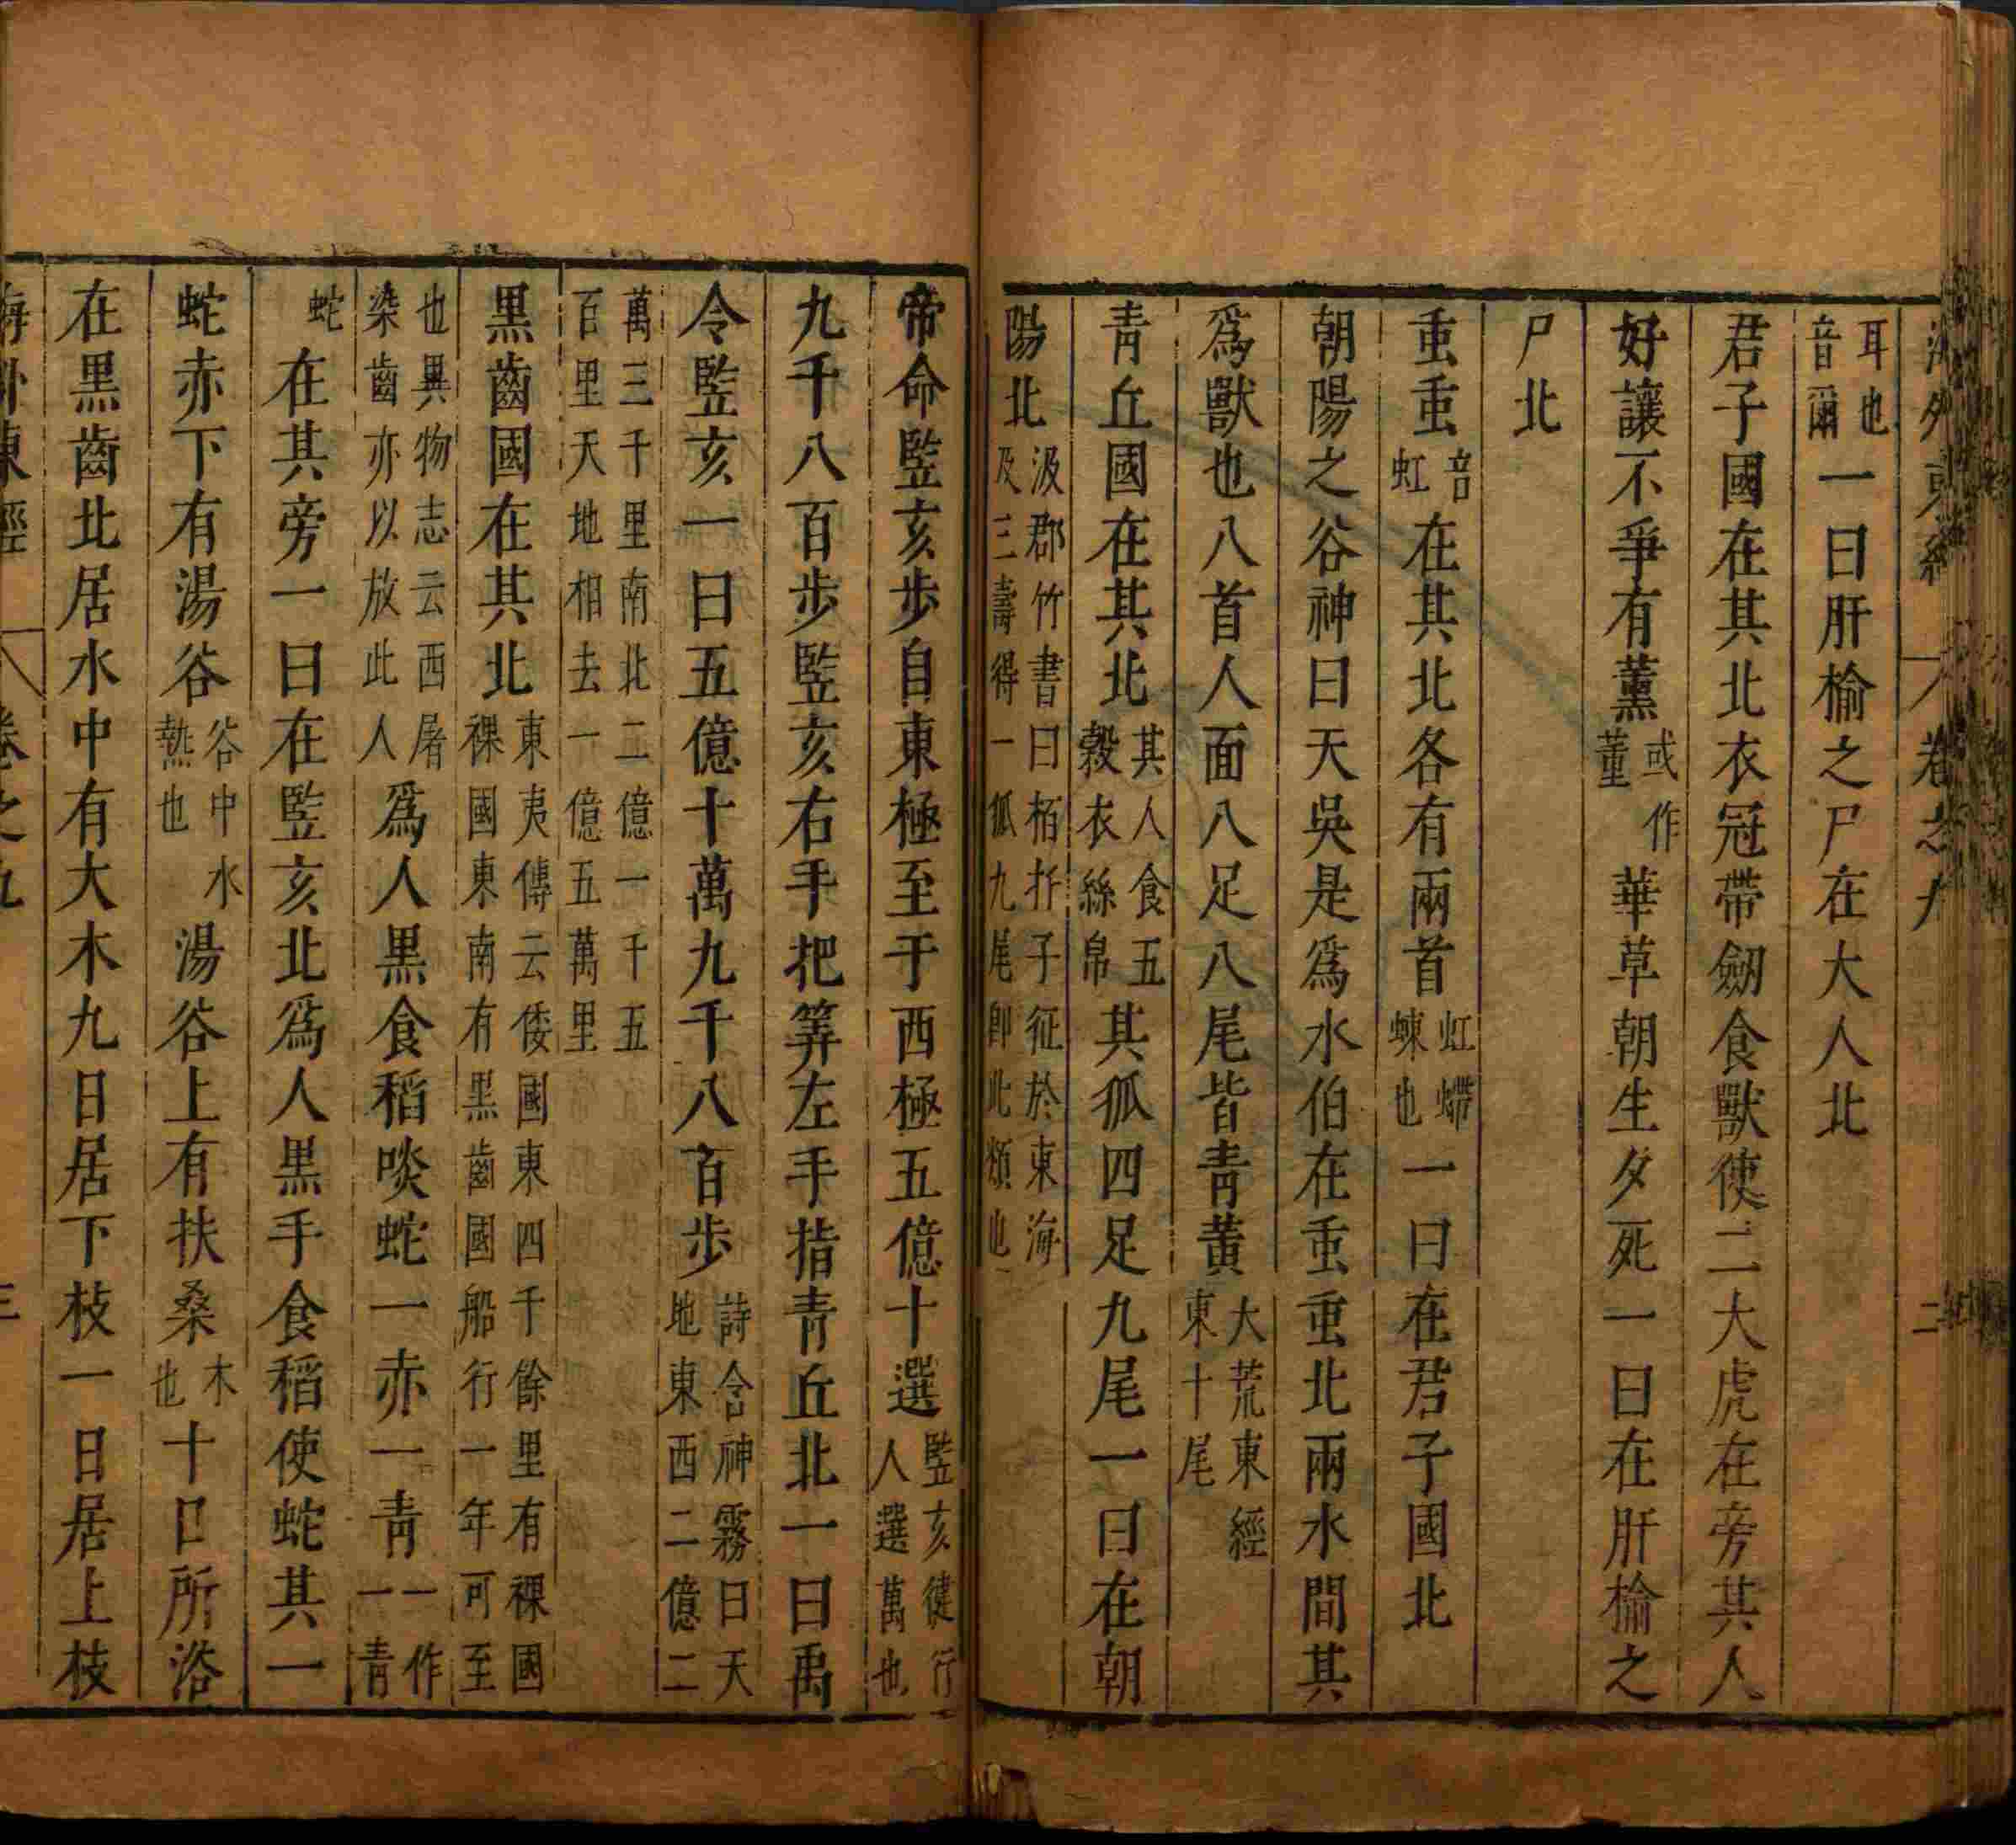 海外東經 卷之九 二
耳也音爾一曰肝榆之尸在大人北
君子國在其北衣冠帶劒食獸使二大虎在旁其人
好讓不爭有薰或作蓳華草朝生夕死一曰在肝榆之
尸北
䖝䖝音虹在其北各有兩首虹螮蝀也一曰在君子國北
朝陽之谷神曰天吳是爲水伯在䖝䖝北兩水間其
爲獸也八首人面八足八尾皆青黃大荒東經東十尾
青丘國在其北其人食五穀衣絲帛其狐四足九尾一曰在朝
陽北汲郡竹書曰栢杼子征於東海及三壽得一狐九尾卽此類也
帝命竪亥步自東極至于西極五億十選竪亥健行人選萬也
九千八百步竪亥右手把筭左手指青丘北一曰禹
令竪亥一曰五億十萬九千八百步詩含神霧曰天地東西二億二
萬三千里南北二億一千五百里天地相去一億五萬里
黑齒國在其北東夷傳云倭國東四千餘里有裸國裸國東南有黑齒國船行一年可至
也異物志云西屠染齒亦以放此人爲人黑食稻啖蛇一赤一青一作一青
蛇在其旁一曰在竪亥北爲人黑手食稻使蛇其一
蛇赤下有湯谷谷中水熱也湯谷上有扶桑木也十日所浴
在黑齒北居水中有大木九日居下枝一日居上枝
海外東經 卷之九 三